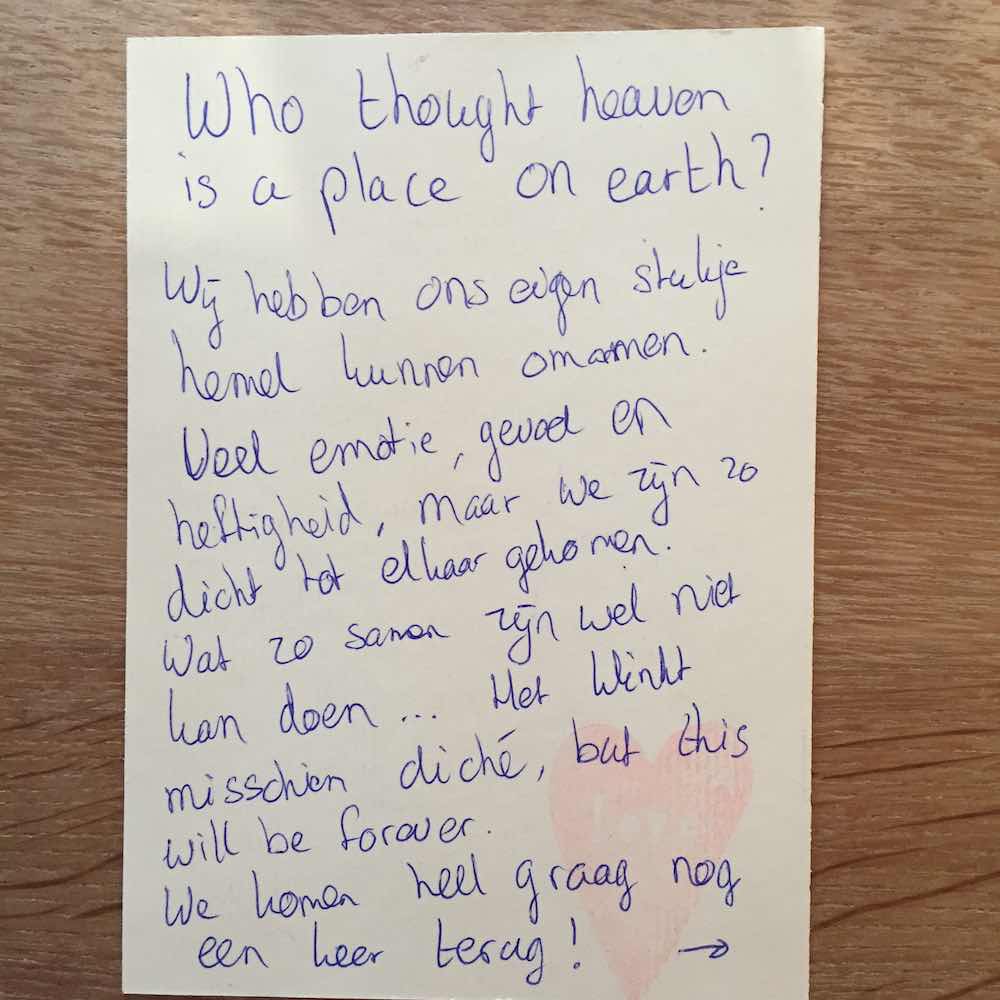 Who thought heaven
is a place on earth?
Wij hebben ons eigen stukje
hemel kunnen omarmen.
Veel emotie, gevoel en
heftigheid, maar we zijn zo
dicht tot elkaar gekomen.
Wat zo samen zijn wel niet
kan doen... Het klinkt
misschien cliché, but this
will be forever.
We komen heel graag nog
een keer terug! →
love